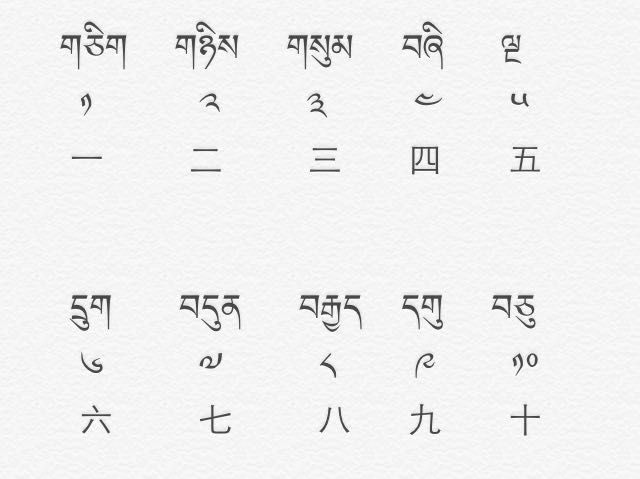 གཅིག གཉིས གསུམ བཞི ལྔ
༡ ༢ ༣ ༤ ༥
一 二 三 四 五
དྲུག བདུན བརྒྱད དགུ བཅུ
༦ ༧ ༨ ༩ ༡༠
六 七 八 九 十